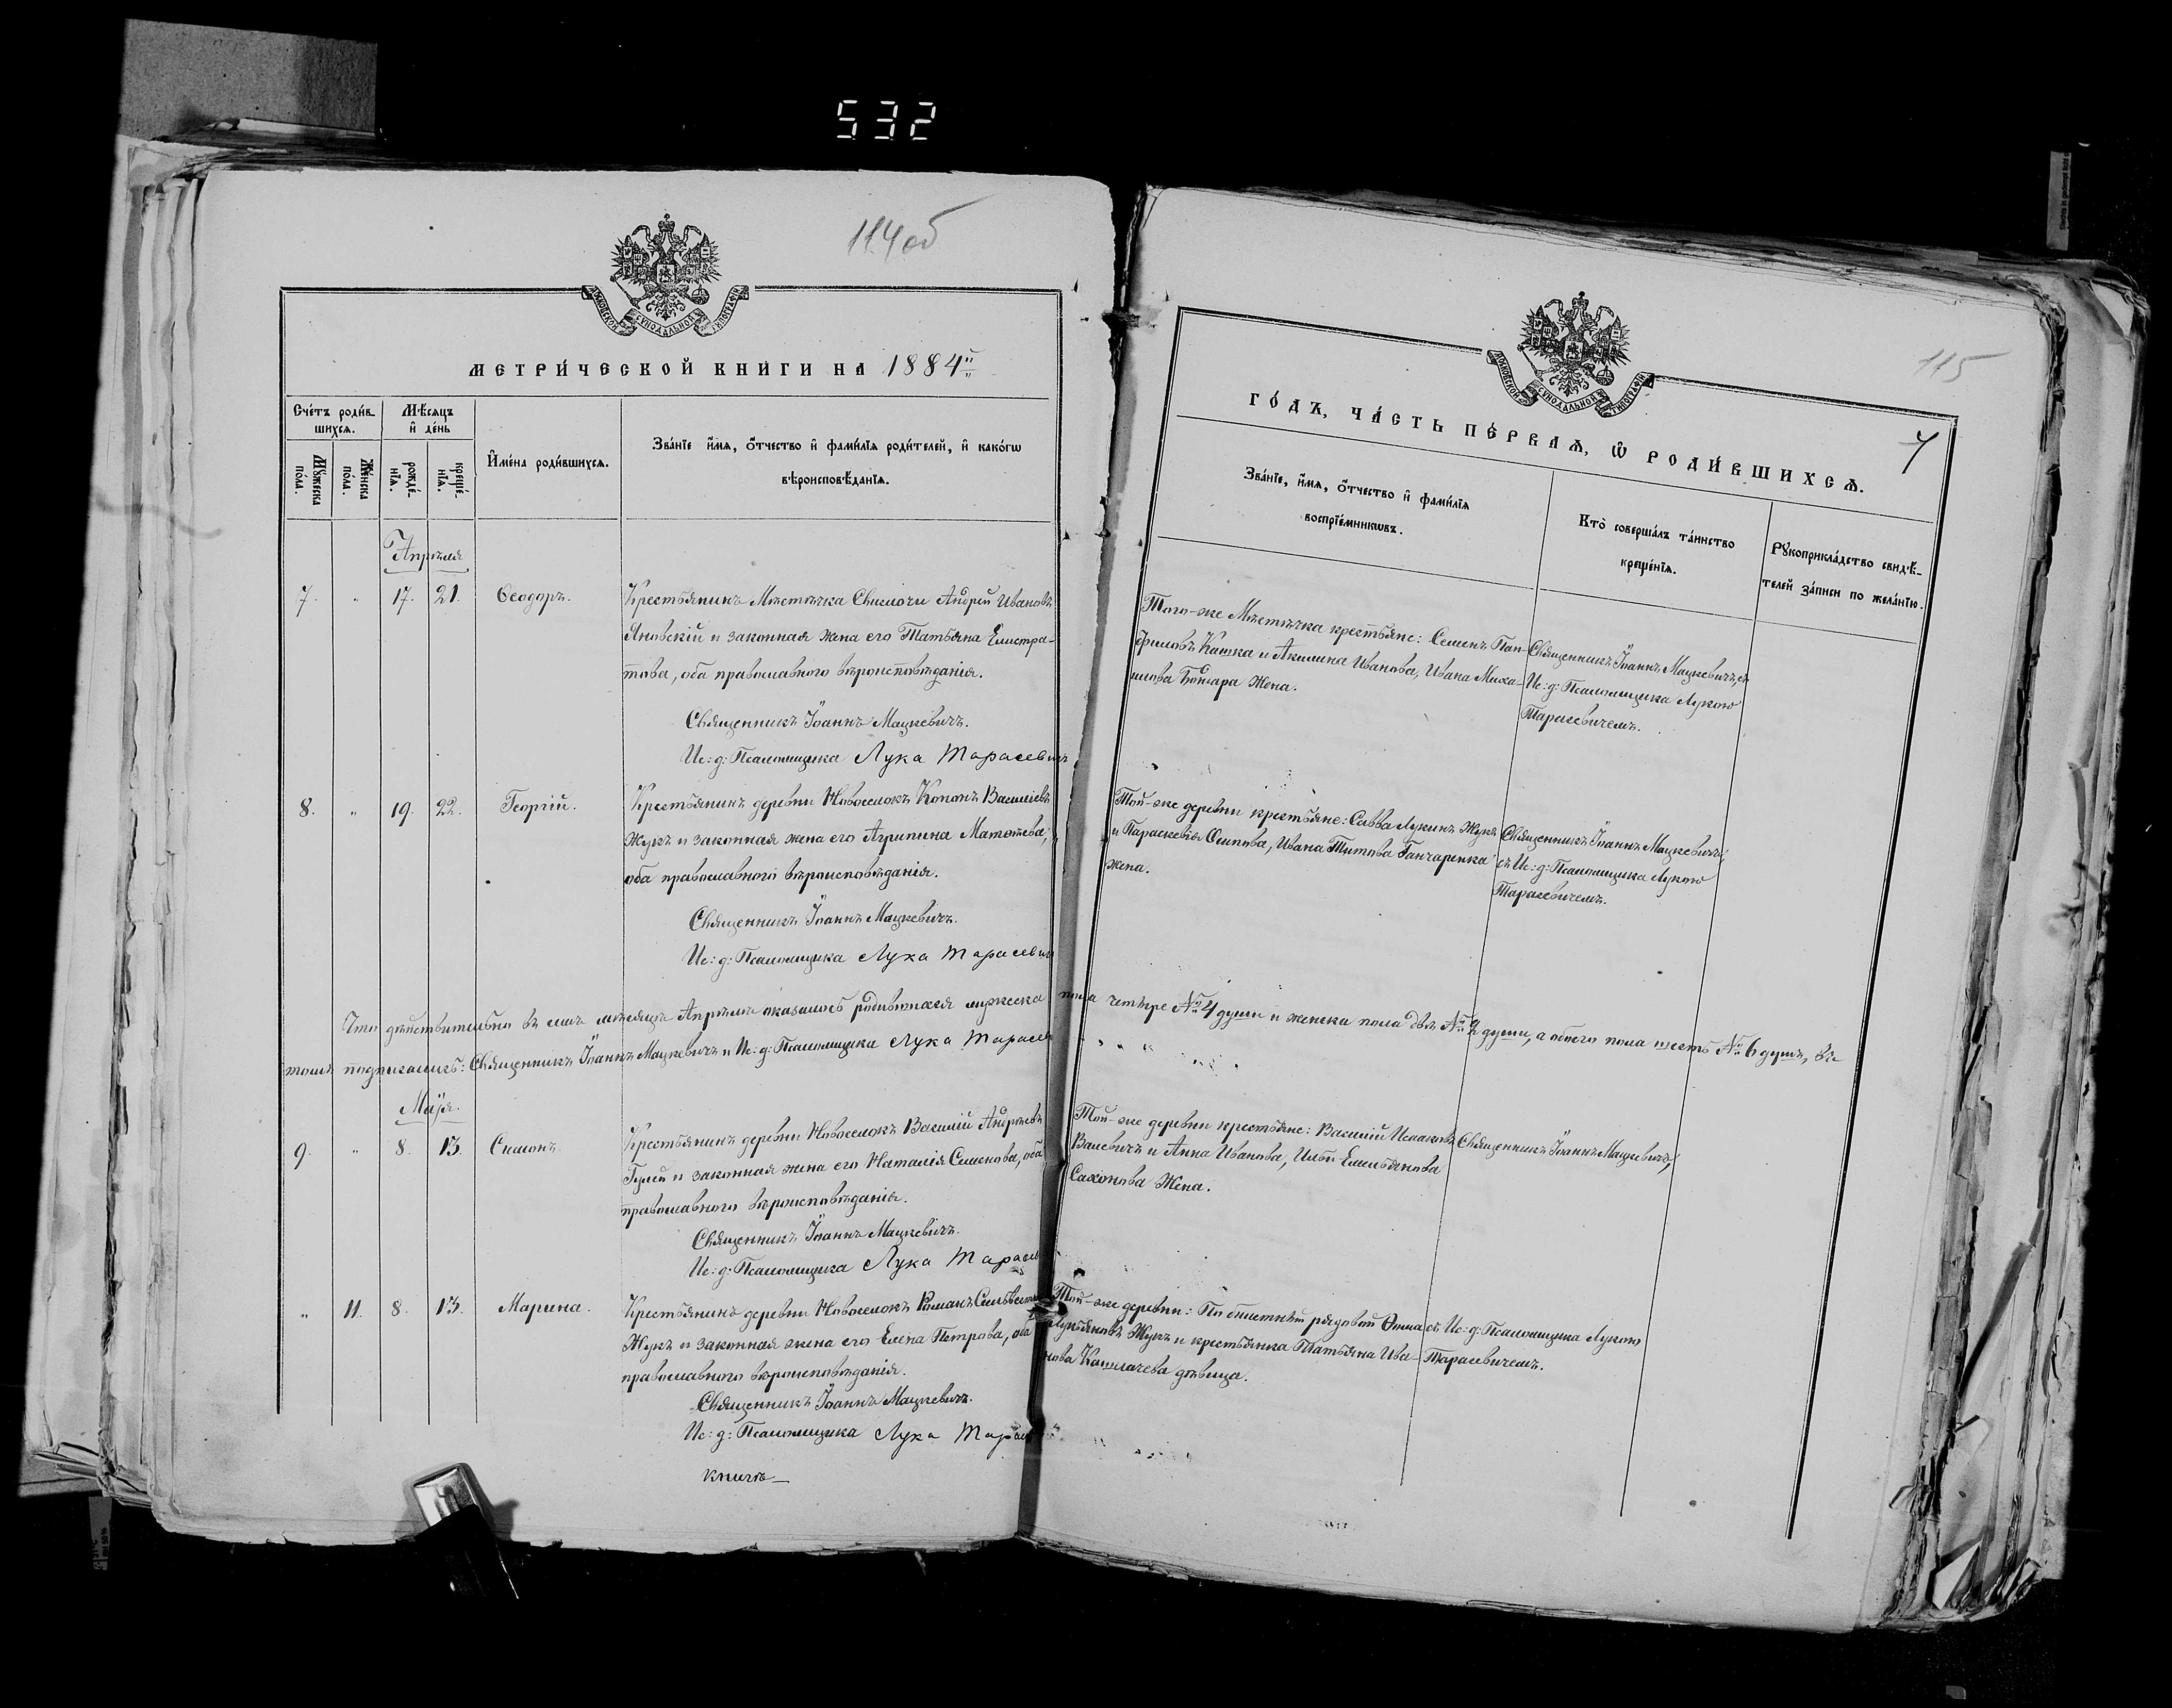 532
114об
МОСКОВСКОЙ СѴНОДАЛЬНОЙ ТИПОГРАФІИ
МЕТРИ́ЧЕСКОЙ КНИ́ГИ НА 1884й
Сче́тъ роди́вшихсѧ.
Мѣ́сѧцъ и҆ де́нь
И҆мена̀ роди́вшихсѧ.
Зва́нїе и҆́мѧ, ѻ҆́тчество и҆ фами́лїѧ роди́телей, и҆ како́гѡ
вѣроисповѣ́данїѧ.
Мꙋ́жеска по́ла.
Же́нска по́ла.
рожде́нїѧ.
креще́нїѧ.
Апрѣля
7. " 17. 21. Ѳеодоръ.
Крестьянинъ Мѣстѣчка Свислочи Андрей Ивановъ
Яновскій и законная жена его Татьяна Елистра-
това, оба православнаго вѣроисповѣданія.
Священникъ Іоаннъ Мацкевичъ.
Ис: д: Псаломщика Лука Тарасевичъ
8. " 19. 22. Георгій.
Крестьянинъ деревни Новоселокъ Кононъ Василіевъ
Жукъ и законная жена его Агрипина Матѳеева,
оба православнаго вѣроисповѣданія.
Священникъ Іоаннъ Мацкевичъ.
Ис: д: Псаломщика Лука Тарасевичъ
Что дѣйствительно въ семъ мѣсяцѣ Апрѣлѣ оказалось родившихся мужеска пола четыре № 4 души и женска пола двѣ № 2 души, а обоего пола шесть № 6 душъ, въ
томъ подписались: Священникъ Іоаннъ Мацкевичъ и Ис: д: Псаломщика Лука Тарасев
Маія.
9. " 8. 13. Симонъ.
Крестьянинъ деревни Новоселокъ Василій Андреевъ
Гулей и законная жена его Наталія Семенова, оба
православнаго вѣроисповѣданія.
Священникъ Іоаннъ Мацкевичъ.
Ис: д: Псаломщика Лука Тарасев
" 11. 8. 13. Марина.
Крестьянинъ деревни Новоселокъ Романъ Сильвестр
Жукъ и законная жена его Елена Петрова, оба
православнаго вѣроисповѣданія.
Священникъ Іоаннъ Мацкевичъ.
Ис: д: Псаломщика Лука Тарасев
книгѣ
115
МОСКОВСКОЙ СѴНОДАЛЬНОЙ ТИПОГРАФІИ
ГО́ДЪ, ЧА́СТЬ ПЕ́РВАѦ, Ѡ҆ РОДИ́ВШИХСѦ.
7
Зва́нїе, и҆́мѧ, ѻ҆́тчество и҆ фами́лїѧ
воспрїе́мникѡвъ.
Кто̀ соверша́лъ та́инство
креще́нїѧ.
Рꙋкоприкла́дство свидѣ́-
телей за́писи по жела́нїю.
Того-же Мѣстѣчка крестьяне: Семенъ Пан-
филовъ Кашка и Акилина Иванова, Ивана Миха-
илова Бондара жена.
Священникъ Іоаннъ Мацкевичъ, съ
Ис: д: Псаломщика Лукою
Тарасевичемъ.
Той-же деревни крестьяне: Савва Лукинъ Жукъ
и Параскевія Осипова, Ивана Титова Ганчаренка
жена.
Священникъ Іоаннъ Мацкевичъ
съ Ис: д: Псаломщика Лукою
Тарасевичемъ.
Той-же деревни крестьяне: Василій Исааковъ
Валевичъ и Анна Иванова, Ильи Емельянова
Сахонова жена.
Священникъ Іоаннъ Мацкевичъ,
Той-же деревни: рядовой Ѳома
Лукьяновъ Жукъ и крестьянка Татьяна Ива-
нова дѣвица.
съ Ис: д: Псаломщика Лукою
Тарасевичемъ.